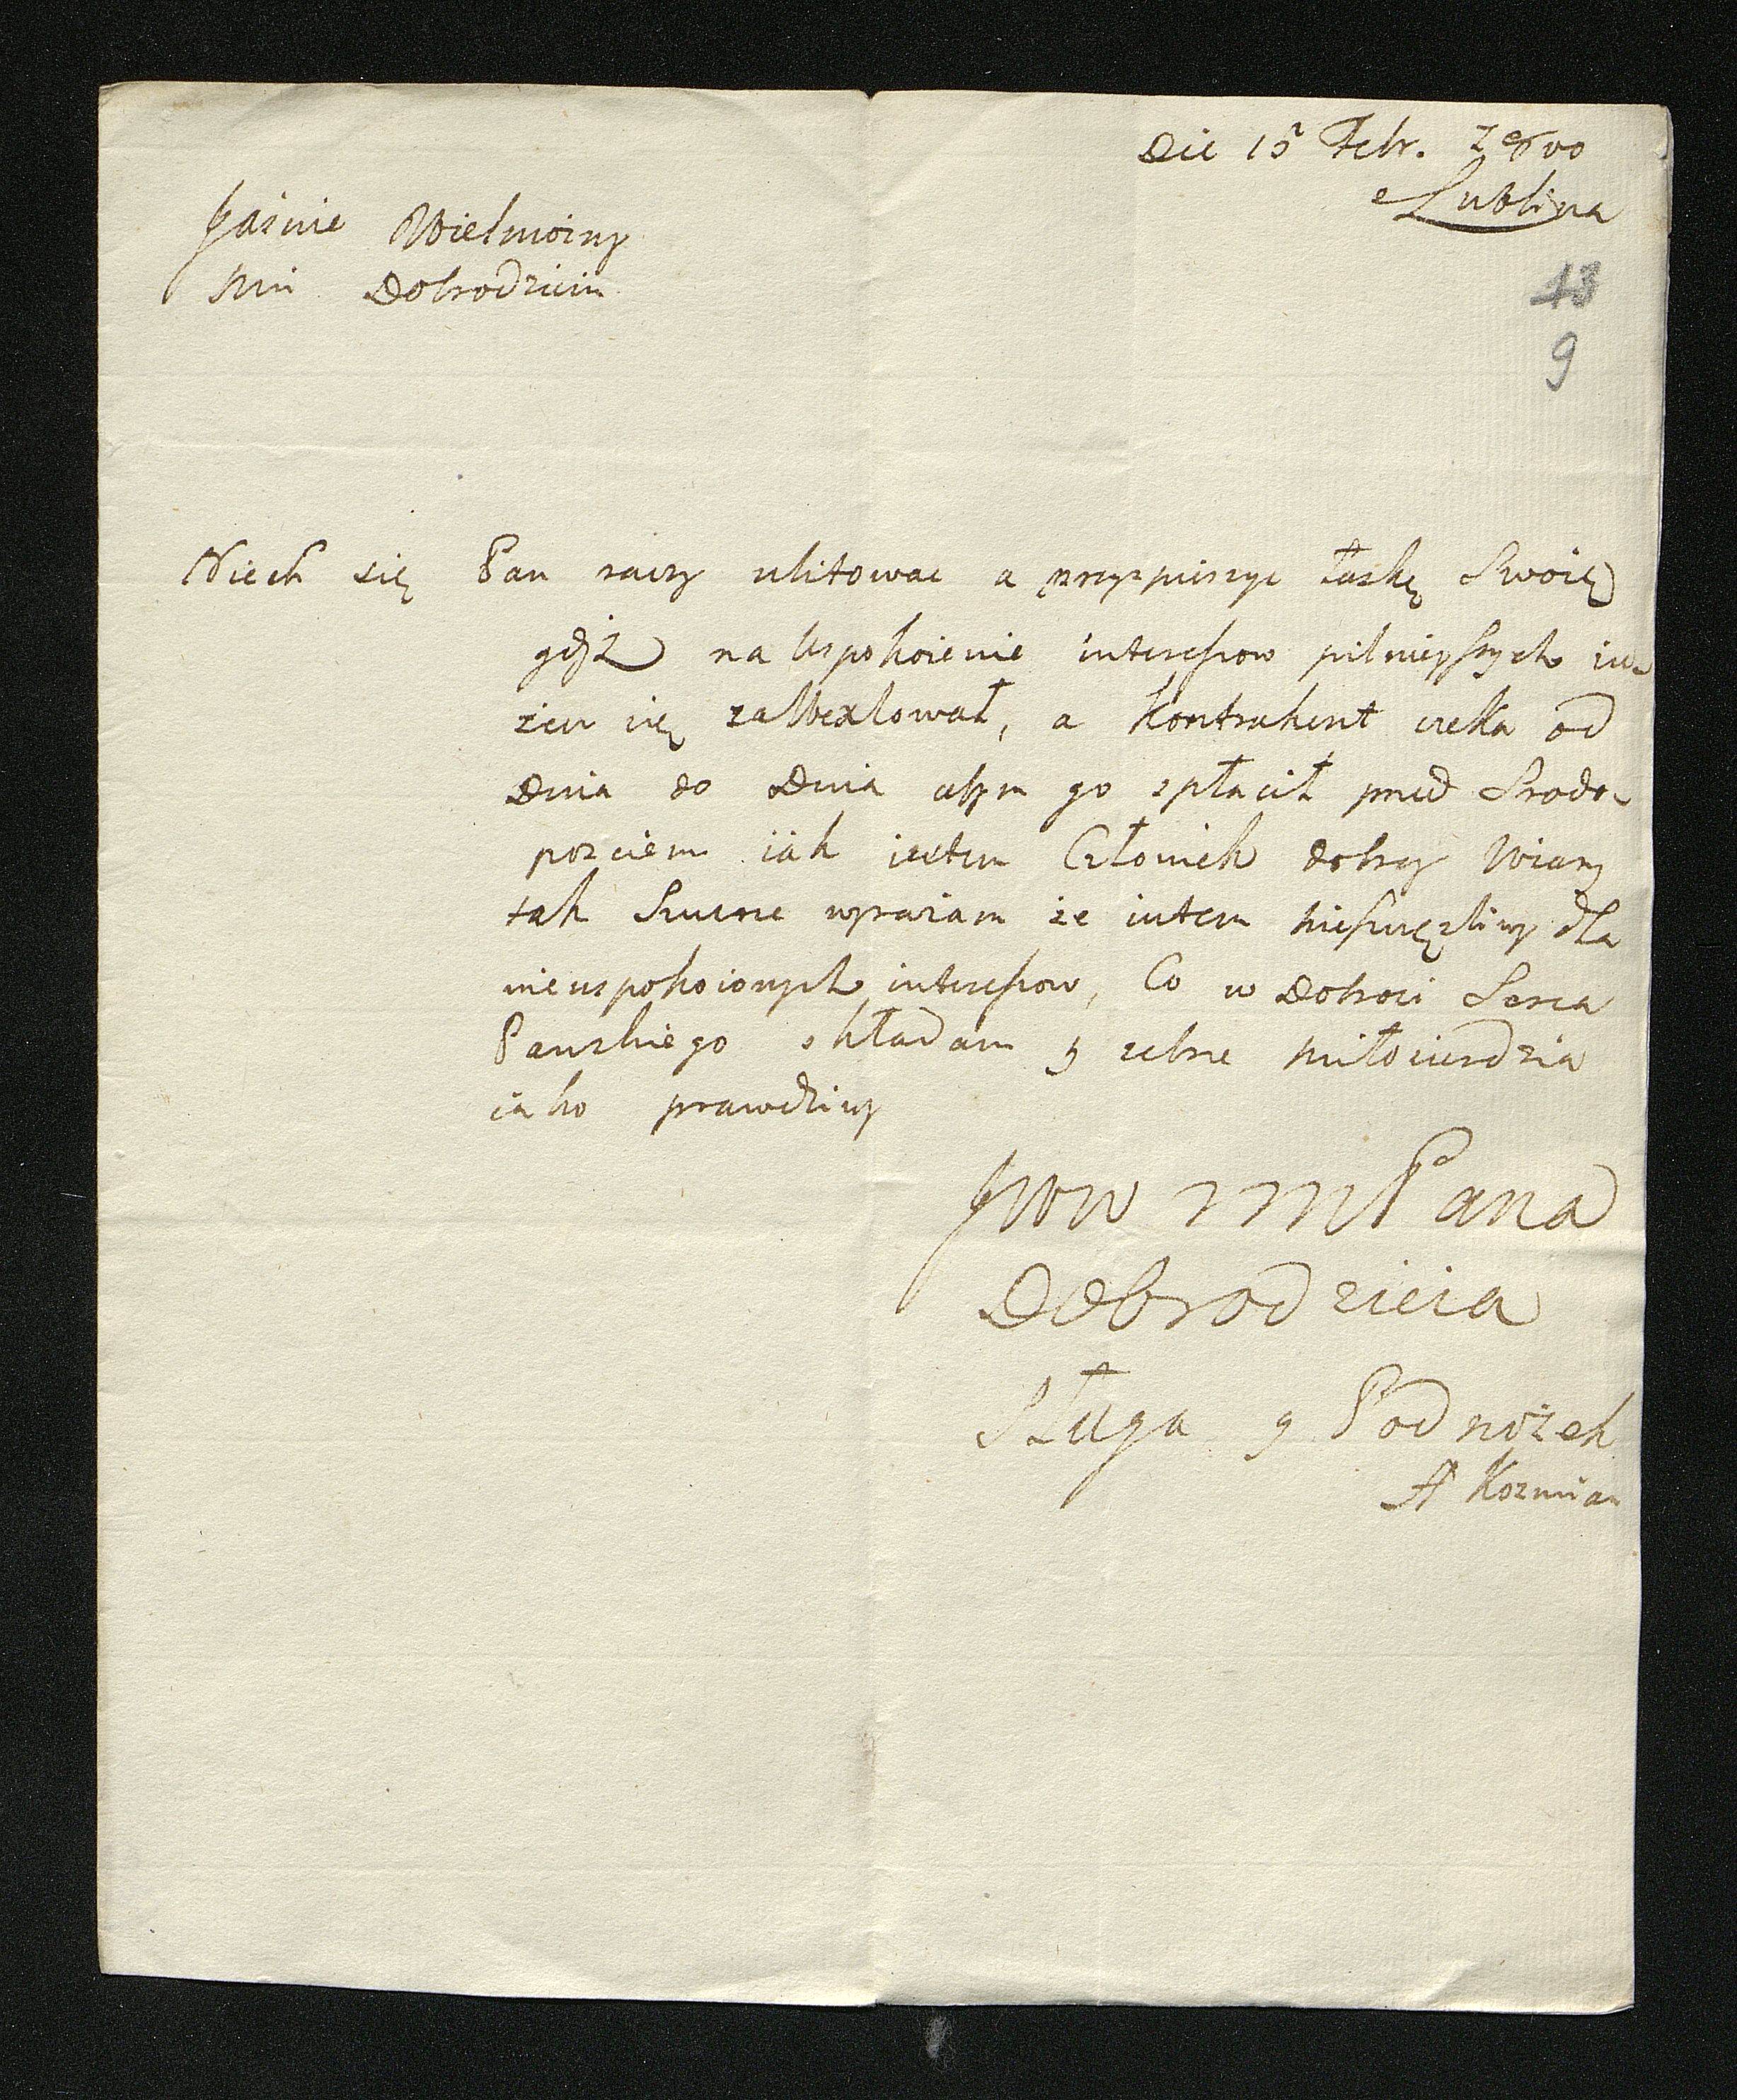 Die 15 Febr. 1800
Lublina
Jaśnie Wielmożny
Mci Dobrodzieiu
13
9
Niech się Pan raczy ulitowac a przyspieszyc łaskę Swoię
gdyż na Uspokoienie interessow pilnieyszych iu-
żem się zaWexlował, a Kontrahent czeka od
Dnia do Dnia abym go spłacił przed Srodo-
posciem iak iestem Człowiek dobrey Wiary
tak Szczerze wyrażam że iestem nieszczęsliwy dla
nieuspokoionych interessow, Co w Dobroci Serca
Panskiego składam y zebrze miłosierdzia
iako prawdziwy
JWW mm Pana
Dobrodzieia
Sługa y Podnożek
A Kozmian